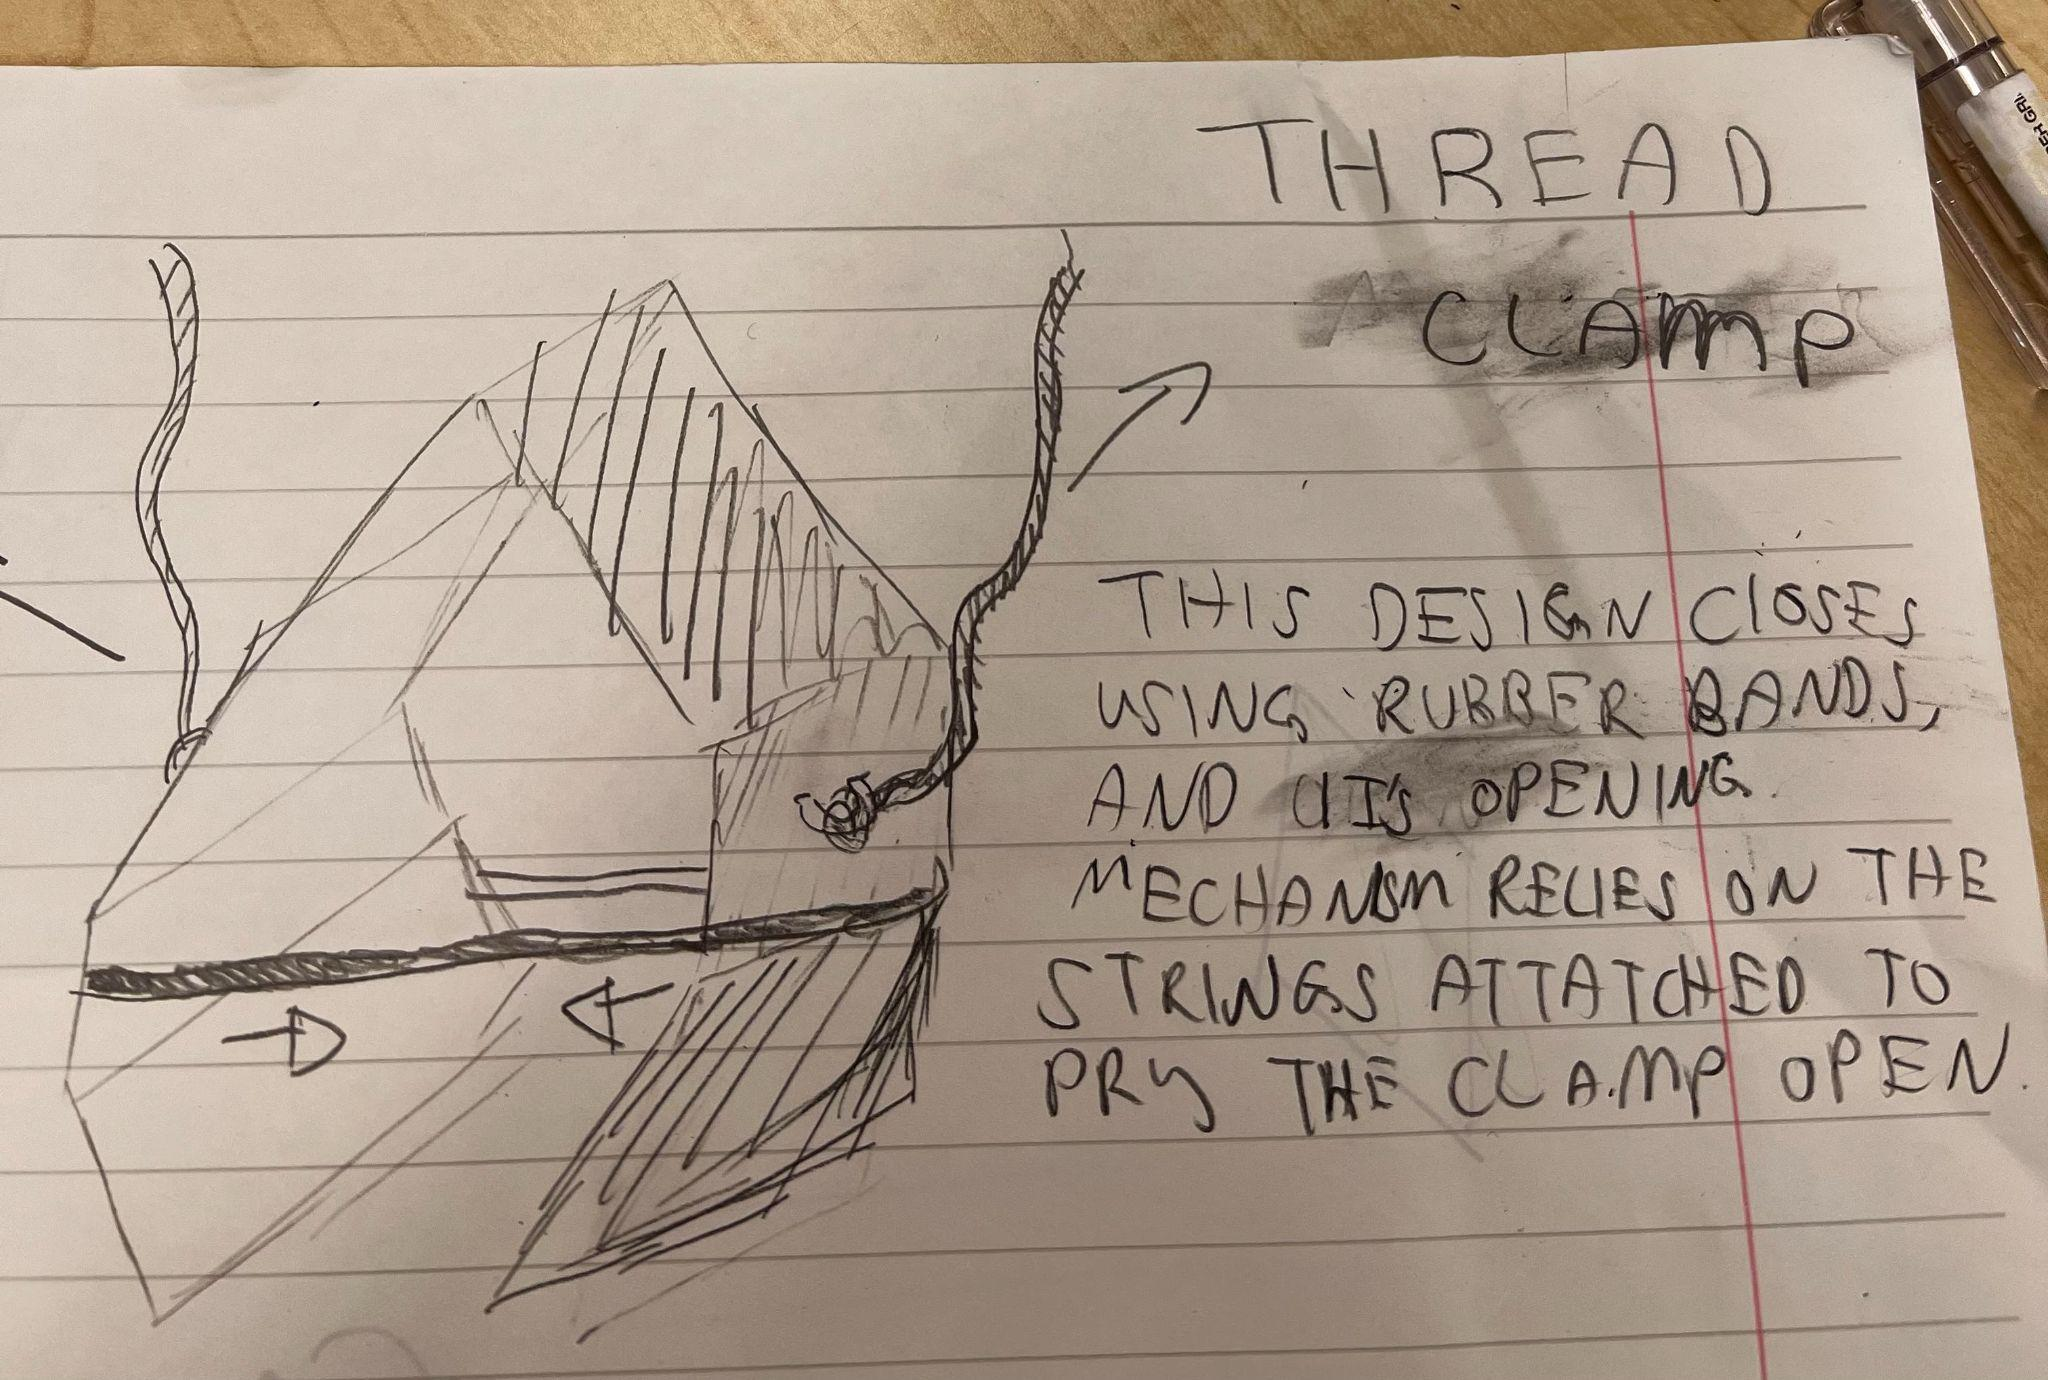 THREAD
CLAMP
THIS DESIGN ClOSES
USING RUBBER BANDS,
AND IT'S OPENING
MECHANISM RELIES ON THE
STRINGS ATTATCHED TO
PRY THE CLAMP OPEN.